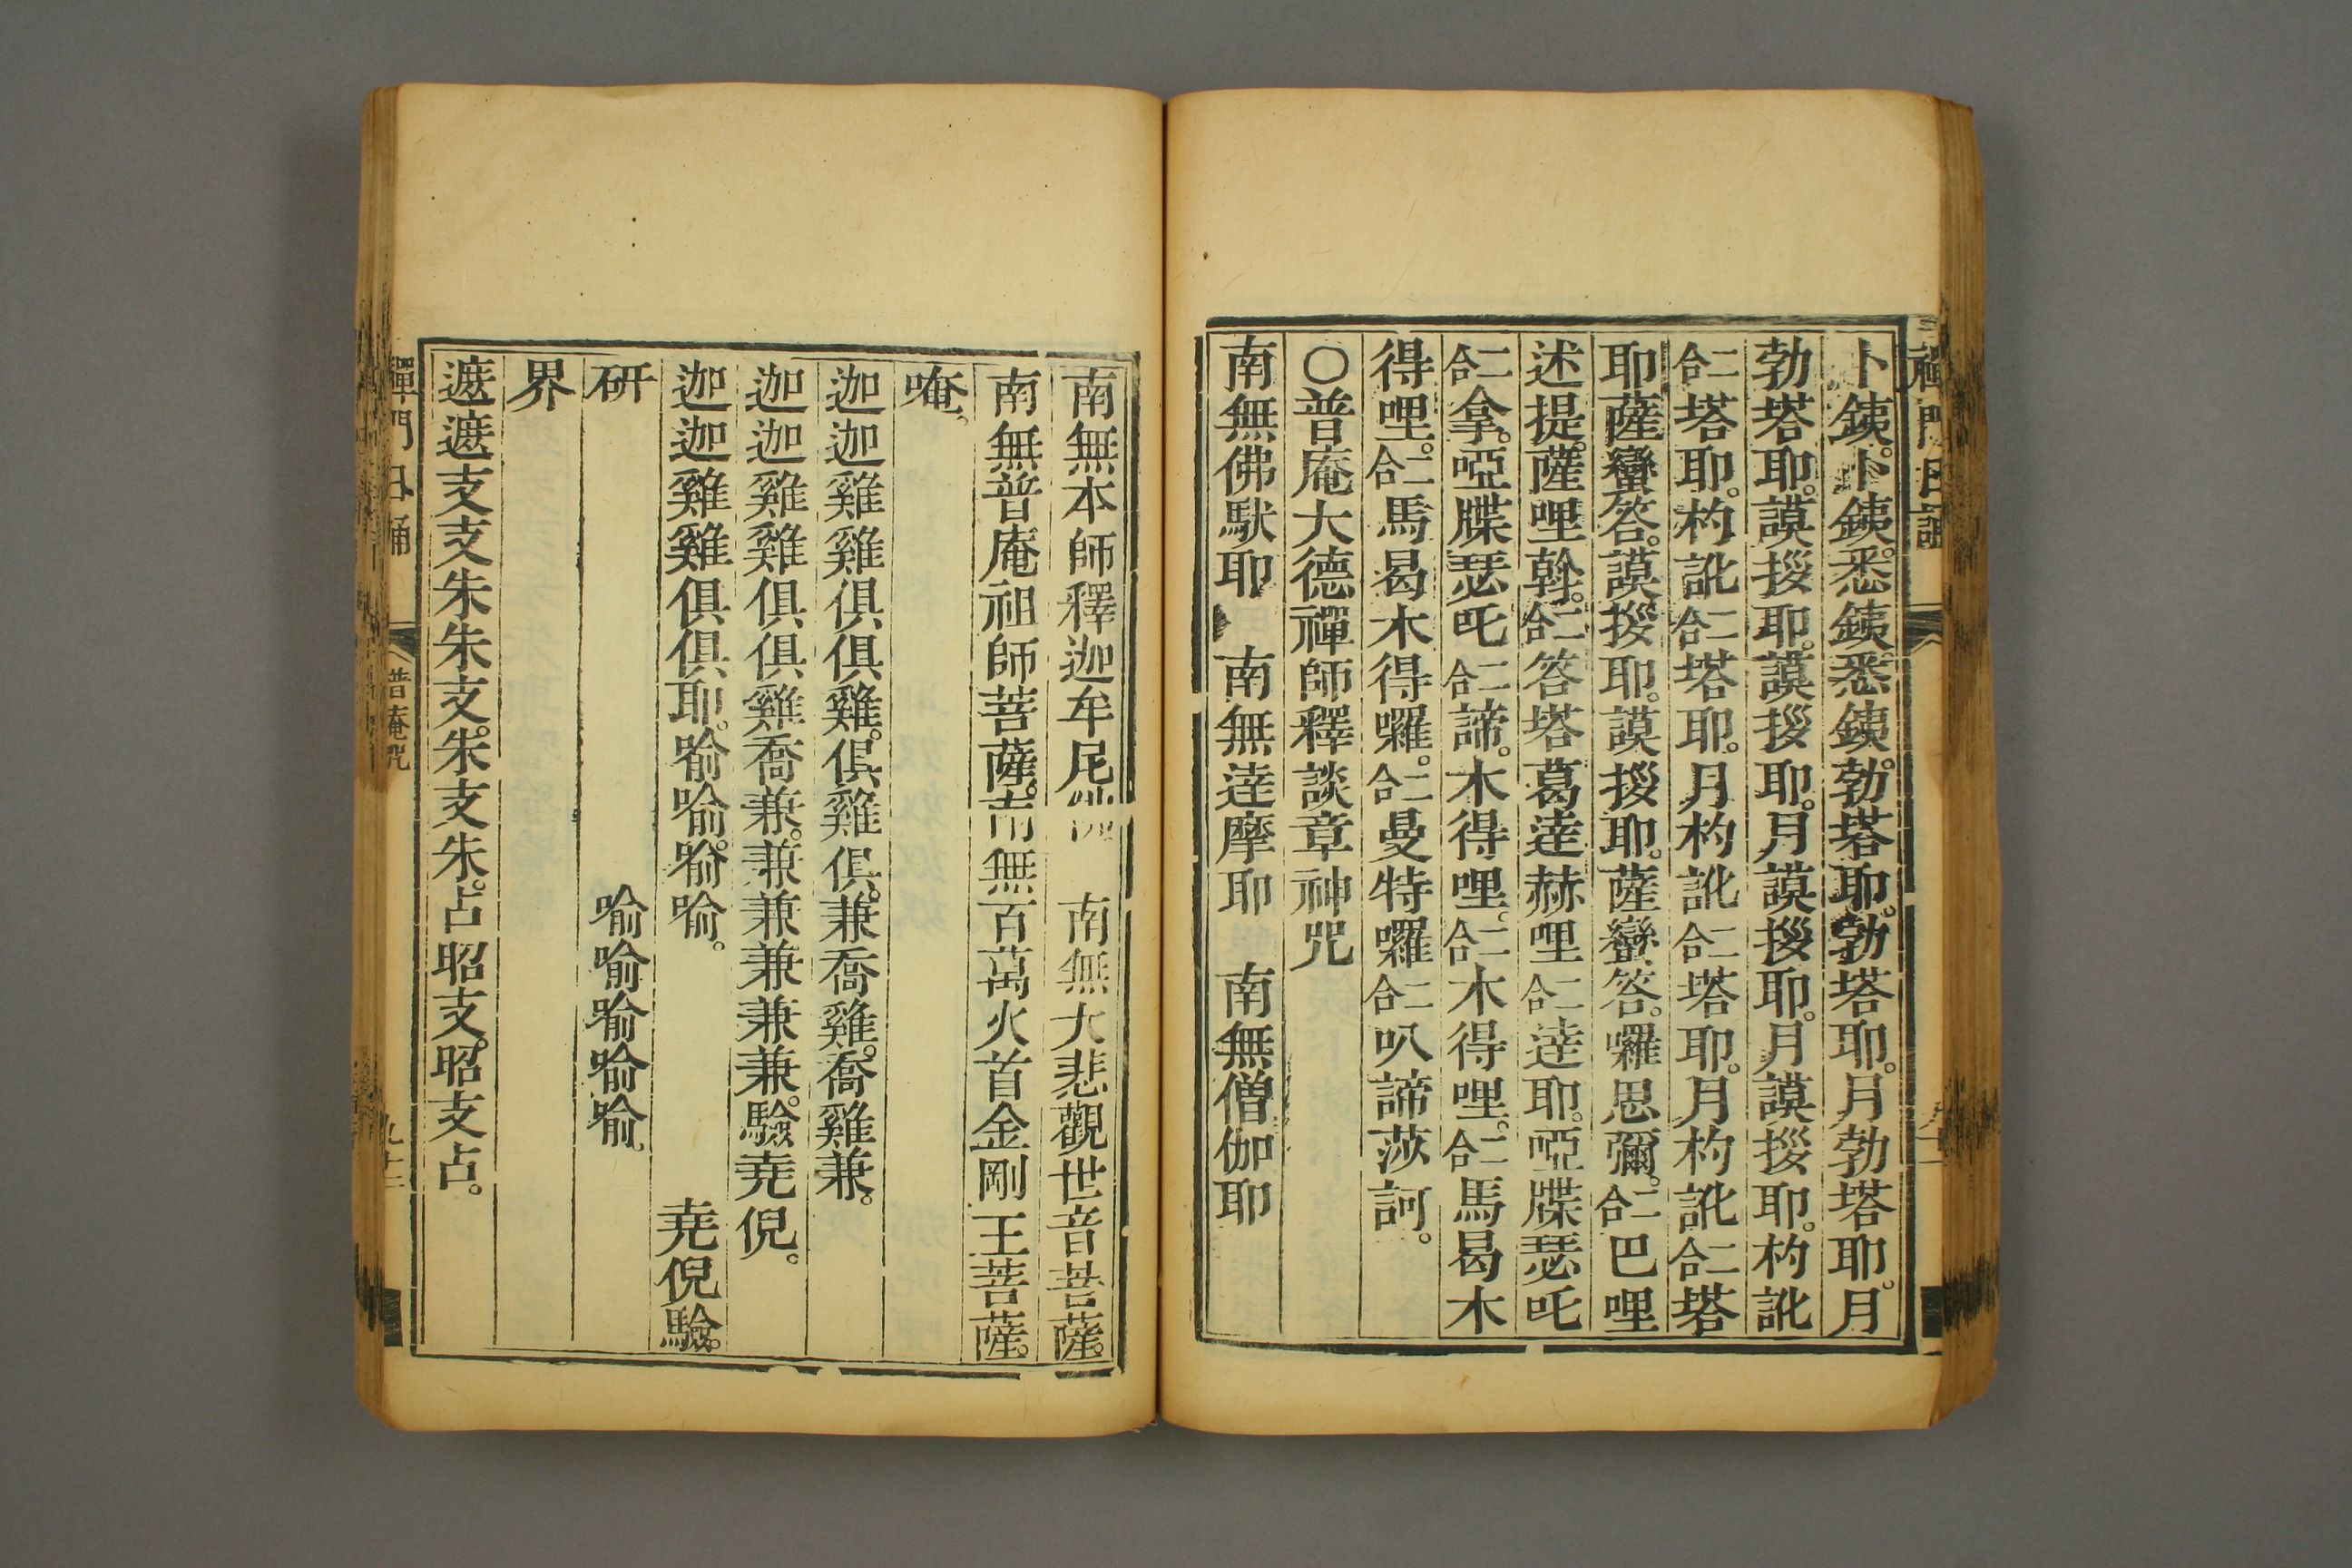 禪門日誦
卜㗚。卜㗚。悉㗚悉㗚。勃塔耶。勃塔耶。月勃塔耶。月
勃塔耶。謨拶耶。謨拶耶。月謨拶耶。月謨拶耶。杓訛
二合塔耶。杓訛二合塔耶。月杓訛二合塔耶。月杓訛二合塔
耶薩蠻答。謨拶耶。謨拶耶。薩蠻答。囉思彌。二合巴哩
述提。薩哩斡。二合答塔葛達赫哩二合達耶。啞牒瑟吒
二合拿。啞牒瑟吒二合諦。木得哩。二合木得哩。二合馬曷木
得哩。二合馬曷木得囉。二合曼特囉二合叭諦莎訶。
○普庵大德禪師釋談章神咒
南無佛馱耶 南無達摩耶 南無僧伽耶
南無本師釋迦牟尼 南無大悲觀世音菩薩。
南無普庵祖師菩薩。南無百萬火首金剛王菩薩。
唵。
迦迦雞雞俱俱雞。俱雞俱。兼喬雞。喬雞兼。
迦迦雞雞俱俱雞喬兼。兼兼兼兼兼。驗堯倪。
迦迦雞雞俱俱耶。喻喻。喻喻。 堯倪驗。
研 喻喻喻喻喻。
界
遮遮支支朱朱支。朱支朱。占昭支。昭支占。
禪門日誦
普庵咒